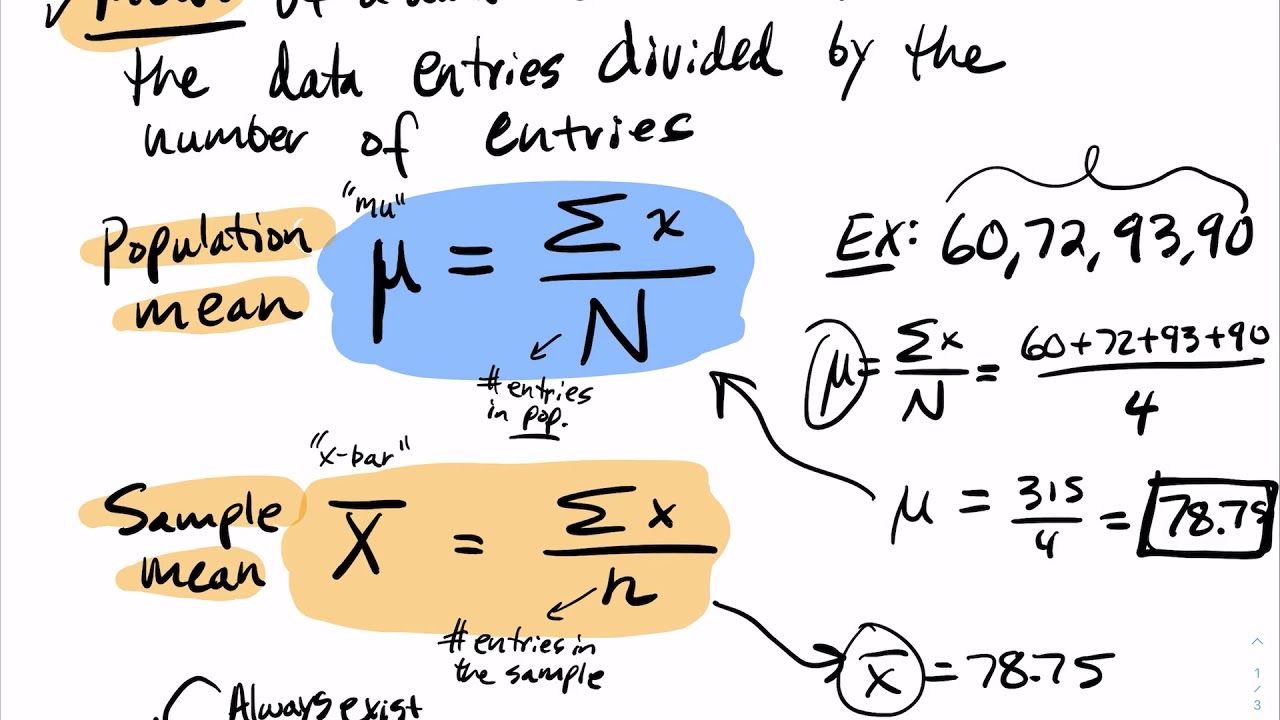 the data entries divided by the
number of entries
Population
mean
"mu"
μ = Σx / N
# entries
in pop.
Ex: 60, 72, 93, 90
μ = Σx / N = 60+72+93+90 / 4
μ = 315 / 4 = 78.75
Sample
mean
"x-bar"
x̄ = Σx / n
# entries in
the sample
x̄ = 78.75
Always exist
1 / 3